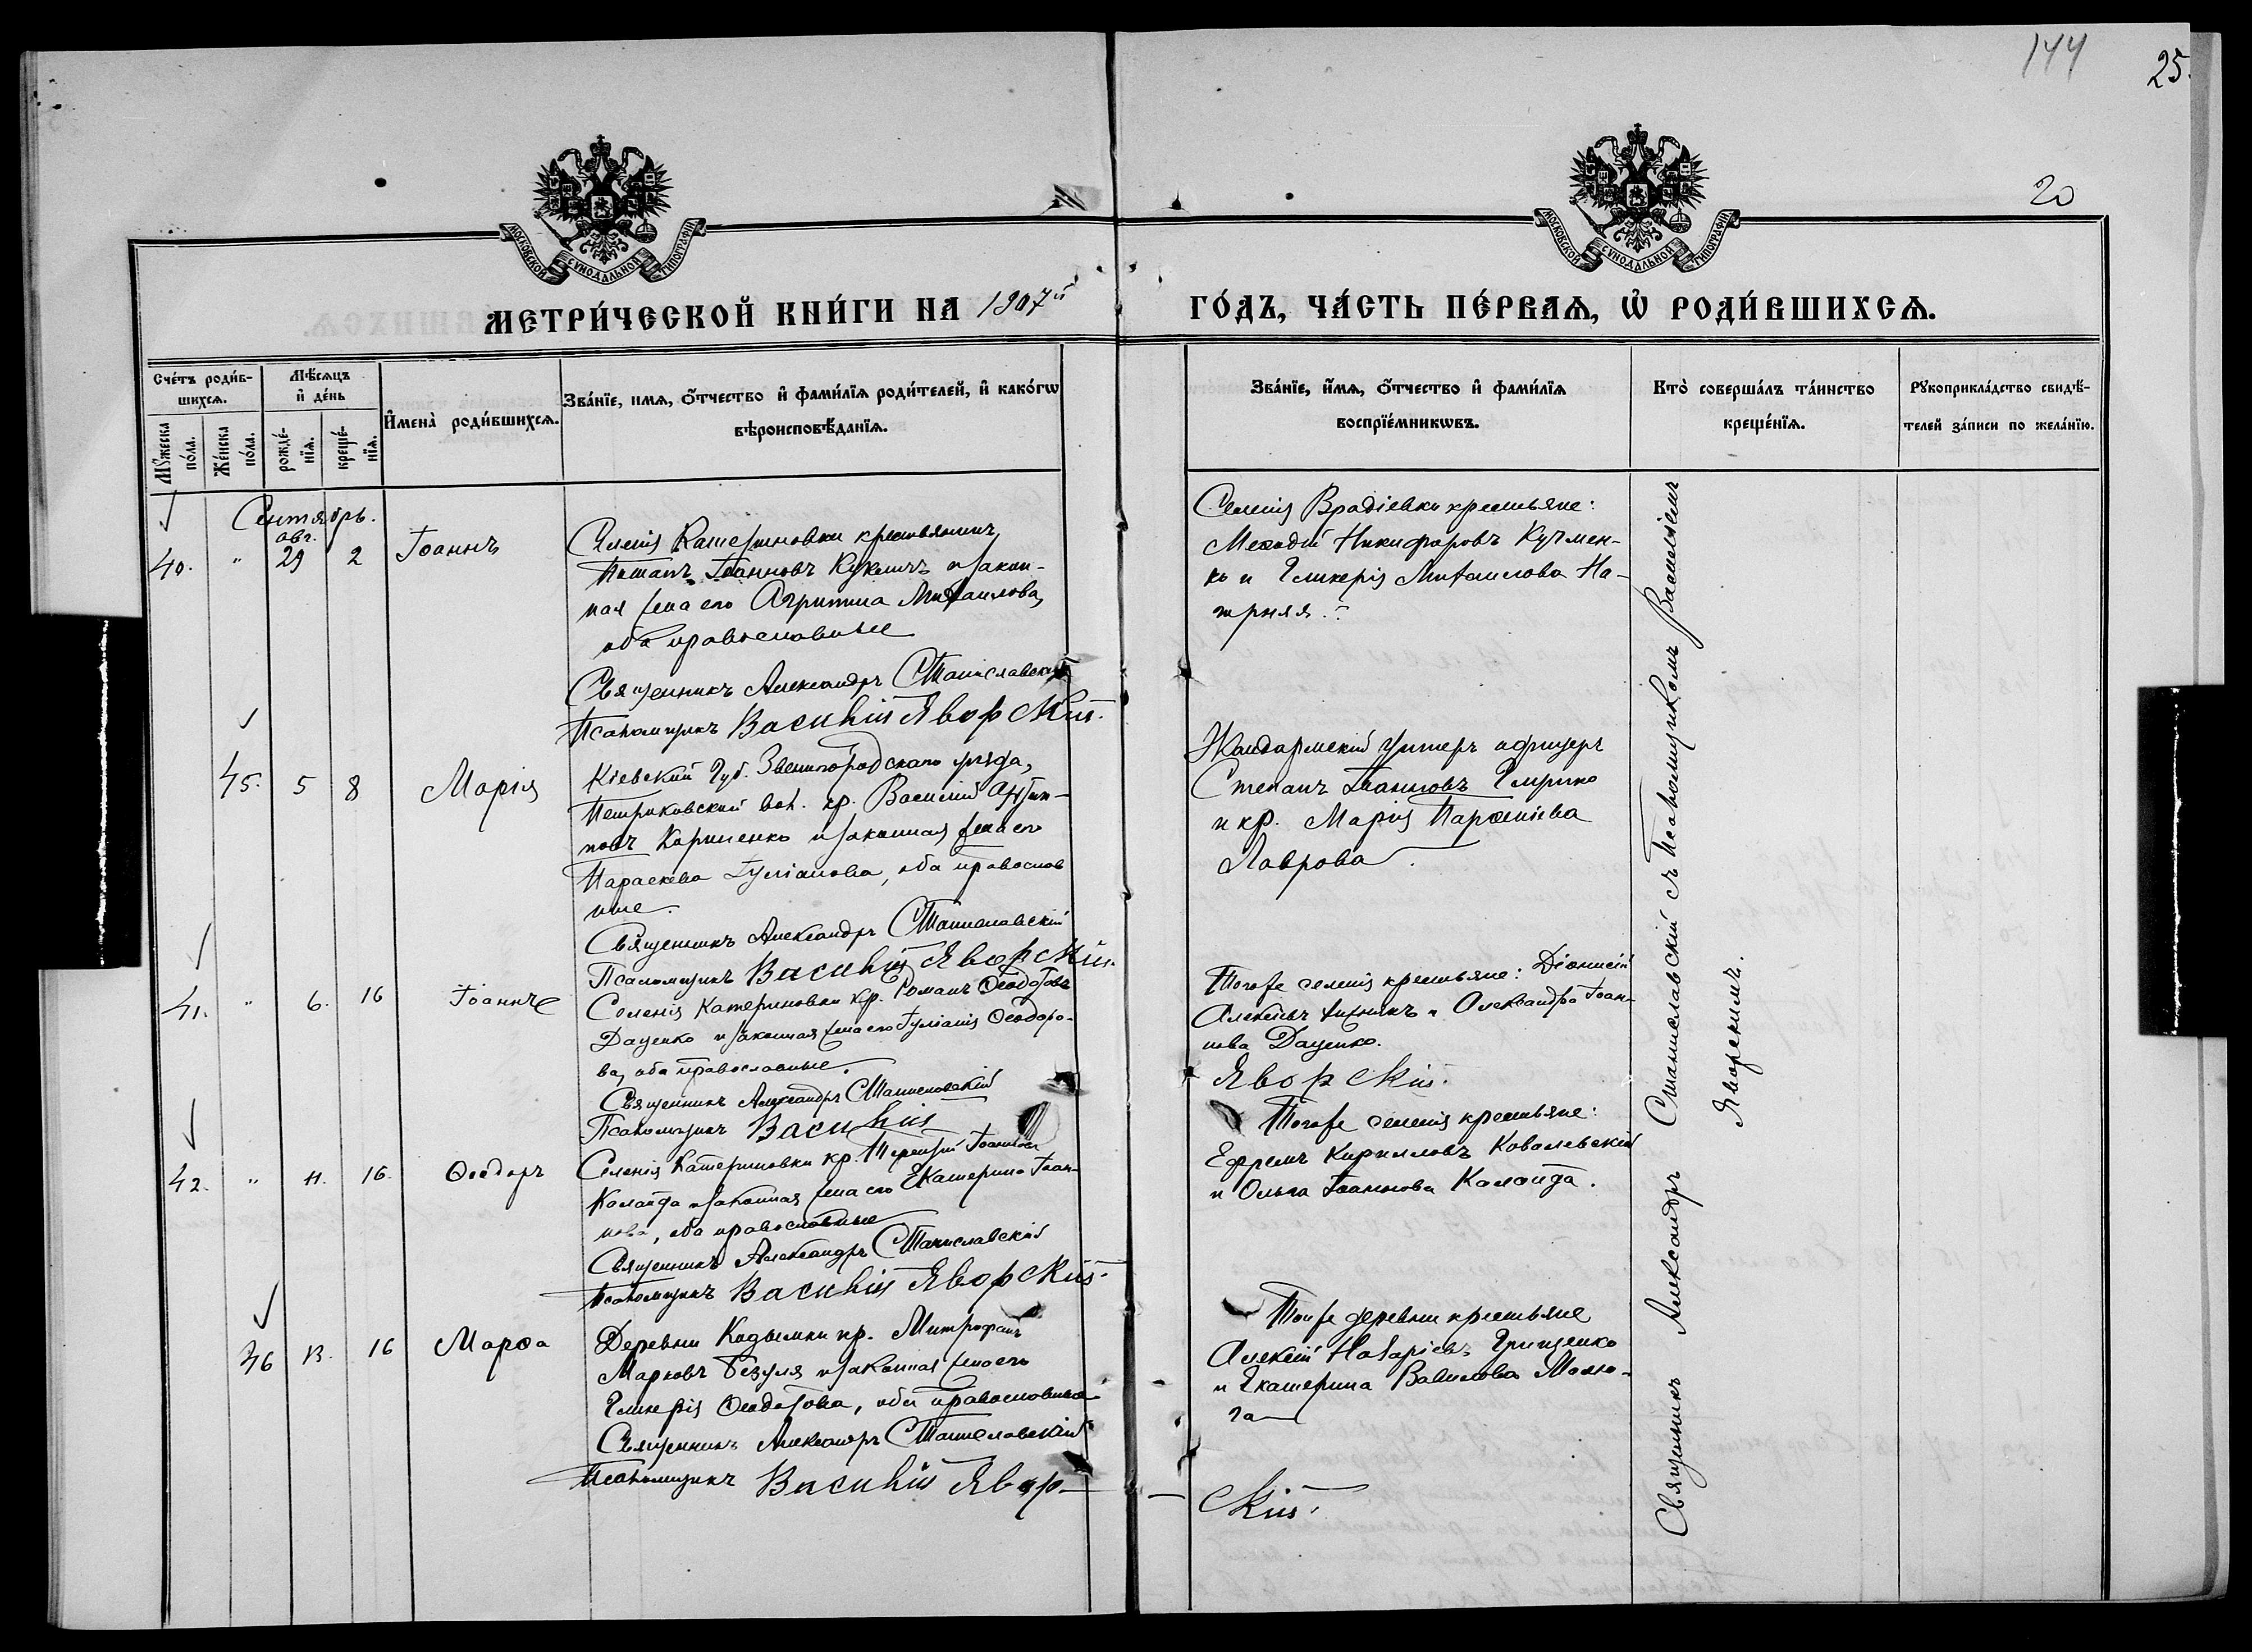 144
25.
20
МОСКОВСКОЙ СѴНОДАЛЬНОЙ ТИПОГРАФІИ
МОСКОВСКОЙ СѴНОДАЛЬНОЙ ТИПОГРАФІИ
МЕТРИ́ЧЕСКОЙ КНИ́ГИ НА 1907й ГО́ДЪ, ЧА́СТЬ ПЕ́РВАѦ, Ѽ РОДИ́ВШИХСѦ.
Сче́тъ роди́в-
шихсѧ.
Мꙋ́жеска по́ла.
Же́нска по́ла.
Мѣ́сѧцъ
и҆ де́нь
рожде́-
нїѧ.
креще́-
нїѧ.
И҆мена̀ роди́вшихсѧ.
Зва́нїе, имѧ, ѻ҆́тчество и҆ фами́лїѧ роди́телей, и҆ како́гѡ
вѣроисповѣ́данїѧ.
Зва́нїе, и҆́мѧ, ѻ҆́тчество и҆ фами́лїѧ
воспрїе́мникѡвъ.
Кто̀ соверша́лъ та́инство
креще́нїѧ.
Рꙋкоприкла́дство свидѣ́-
телей за́писи по жела́нїю.
Сентябрь.
авг.
40. " 29 2 Іоаннъ
Селенія Катериновки крестьянинъ
Потапъ Іоанновъ Кукличъ и закон-
ная жена его Агрипина Михаилова,
оба православные
Священникъ Александръ Станиславскій
Псаломщикъ Василій Яворскій.
Селенія Врадіевки крестьяне:
Мефодій Никифоровъ Кучмен-
ко и Гликерія Михаилова На-
45. 5 8 Марія
Кіевской Губ. Звенигородскаго уѣзда,
Петриковской вол. кр. Василій
новъ Корниенко и законная жена его
Параскева Іуліанова, оба православ
ные.
Священникъ Александръ Станиславскій
Псаломщикъ Василій Яворскій.
Жандармскій унтеръ офицеръ
Степанъ Іоанновъ
и кр. Марія Парѳеніева
Лаврова.
41. " 6. 16 Іоаннъ
Селенія Катериновки кр. Романъ Ѳеодотовъ
Даценко и законная жена его Іуліанія Ѳеодоро-
ва, оба православные.
Священникъ Александръ Станиславскій
Псаломщикъ Василій
Тогоже селенія крестьяне: Діонисій
Алексѣевъ и Александра Іоан-
нова Даценко.
Яворскій.
42. " 11. 16. Ѳеодоръ
Селенія Катериновки кр. Терентій Іоанновъ
Калайда и законная жена его Екатерина Іоан-
нова, оба православные
Священникъ Александръ Станиславскій
Псаломщикъ Василій Яворскій.
Тогоже селенія крестьяне:
Ефремъ Кирилловъ Ковалевскій
и Ольга Іоаннова Калайда.
46 13. 16 Марѳа
Деревни Кодымки кр. Митрофанъ
Марковъ Безуля и законная жена его
Гликерія Ѳеодотова, оба православные
Священникъ Александръ Станиславскій
Псаломщикъ Василій Явор-
Тойже деревни крестьяне
Алексій Назаріевъ Грищенко
и Екатерина Вавилова Малю-
га
скій.
Священникъ Александръ Станиславскій съ Псаломщикомъ Василіемъ
Яворскимъ.